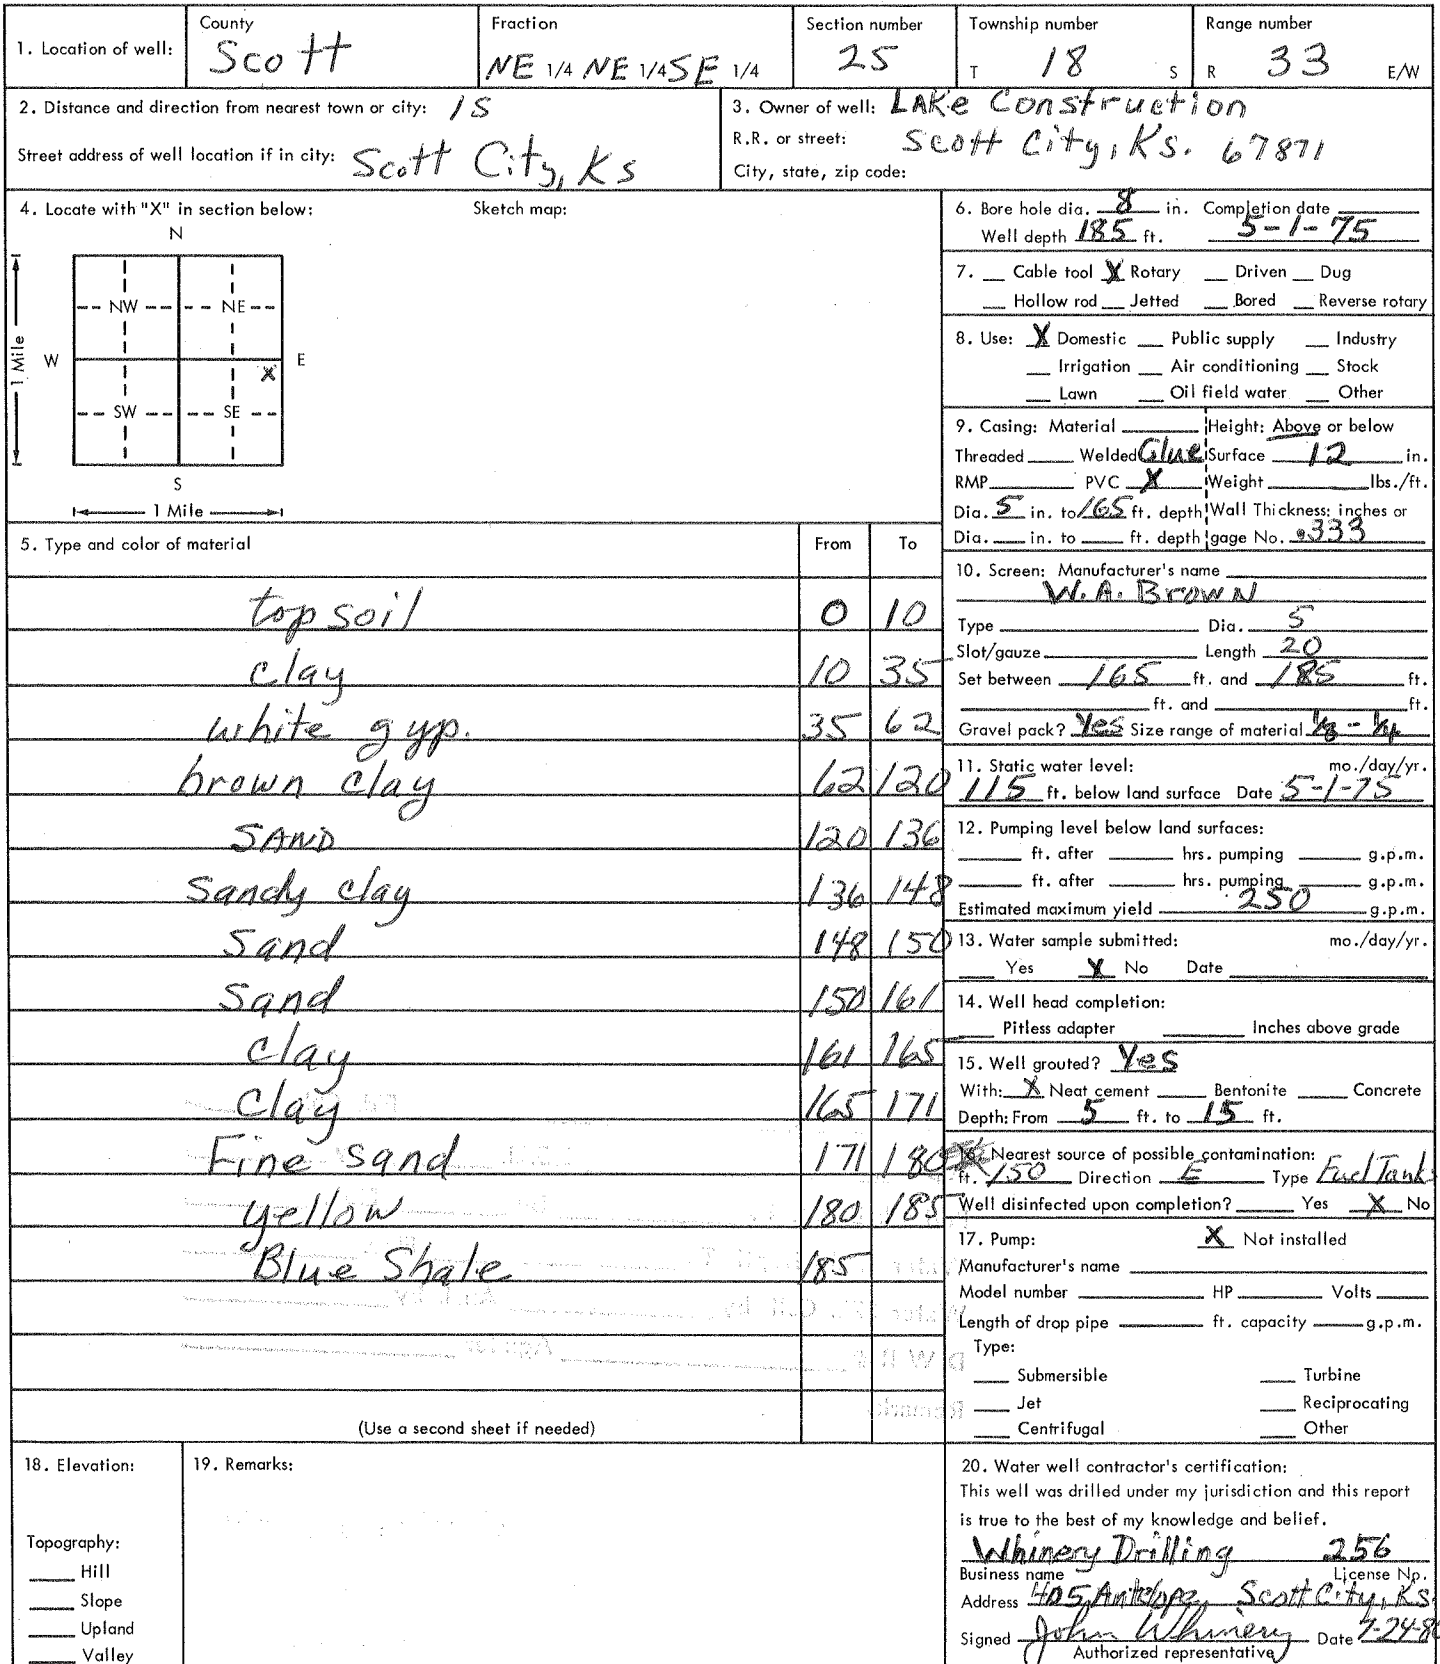 1. Location of well: County Scott Fraction NE 1/4 NE 1/4 SE 1/4 Section number 25 Township number T 18 S Range number R 33 E/W
2. Distance and direction from nearest town or city: 1S
Street address of well location if in city: Scott City, Ks
3. Owner of well: LAKe Construction
R.R. or street: Scott City, Ks. 67871
City, state, zip code:
4. Locate with "X" in section below: Sketch map:
N
NW NE
W E
1 Mile
X
SW SE
S
1 Mile
5. Type and color of material From To
top soil 0 10
clay 10 35
white gyp. 35 62
brown clay 62 120
SAND 120 136
Sandy clay 136 148
Sand 148 150
Sand 150 161
clay 161 165
clay 165 171
Fine sand 171 180
yellow 180 185
Blue Shale 185
(Use a second sheet if needed)
6. Bore hole dia. 8 in. Completion date
Well depth 185 ft. 5-1-75
7. __ Cable tool X Rotary __ Driven __ Dug
__ Hollow rod __ Jetted __ Bored __ Reverse rotary
8. Use: X Domestic __ Public supply __ Industry
__ Irrigation __ Air conditioning __ Stock
__ Lawn __ Oil field water __ Other
9. Casing: Material ____ Height: Above or below
Threaded ____ Welded Glue Surface 12 in.
RMP ____ PVC X Weight ____ lbs./ft.
Dia. 5 in. to 165 ft. depth Wall Thickness: inches or
Dia. __ in. to __ ft. depth gage No. .333
10. Screen: Manufacturer's name
W.A. Brown
Type ____ Dia. 5
Slot/gauze ____ Length 20
Set between 165 ft. and 185 ft.
____ ft. and ____ ft.
Gravel pack? Yes Size range of material 1/8 - 1/4
11. Static water level: mo./day/yr.
115 ft. below land surface Date 5-1-75
12. Pumping level below land surfaces:
____ ft. after ____ hrs. pumping ____ g.p.m.
____ ft. after ____ hrs. pumping ____ g.p.m.
Estimated maximum yield 250 g.p.m.
13. Water sample submitted: mo./day/yr.
__ Yes X No Date ____
14. Well head completion:
__ Pitless adapter ____ Inches above grade
15. Well grouted? Yes
With: X Neat cement __ Bentonite __ Concrete
Depth: From 5 ft. to 15 ft.
Nearest source of possible contamination:
ft. 150 Direction E Type Fuel Tank
Well disinfected upon completion? __ Yes X No
17. Pump: X Not installed
Manufacturer's name ____
Model number ____ HP ____ Volts ____
Length of drop pipe ____ ft. capacity ____ g.p.m.
Type:
__ Submersible __ Turbine
__ Jet __ Reciprocating
__ Centrifugal __ Other
18. Elevation:
Topography:
__ Hill
__ Slope
__ Upland
__ Valley
19. Remarks:
20. Water well contractor's certification:
This well was drilled under my jurisdiction and this report
is true to the best of my knowledge and belief.
Whinery Drilling 256
Business name License No.
Address 405 Antelope Scott City, Ks
Signed John Whinery Date 7-24-80
Authorized representative